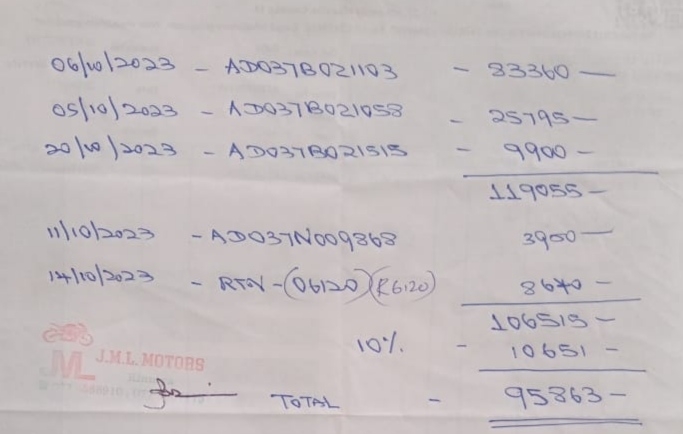 06/10/2023 - AD037B021103 - 83360 —
05/10/2023 - AD037B021058 - 25795 —
20/10/2023 - AD037B021515 - 9900 —
119055 —
11/10/2023 - AD037N009868 3900 —
14/10/2023 - RTN - (06120) (R6120) 8640 —
106515 —
10% - 10651 —
ML J.M.L. MOTORS
TOTAL - 95863 —